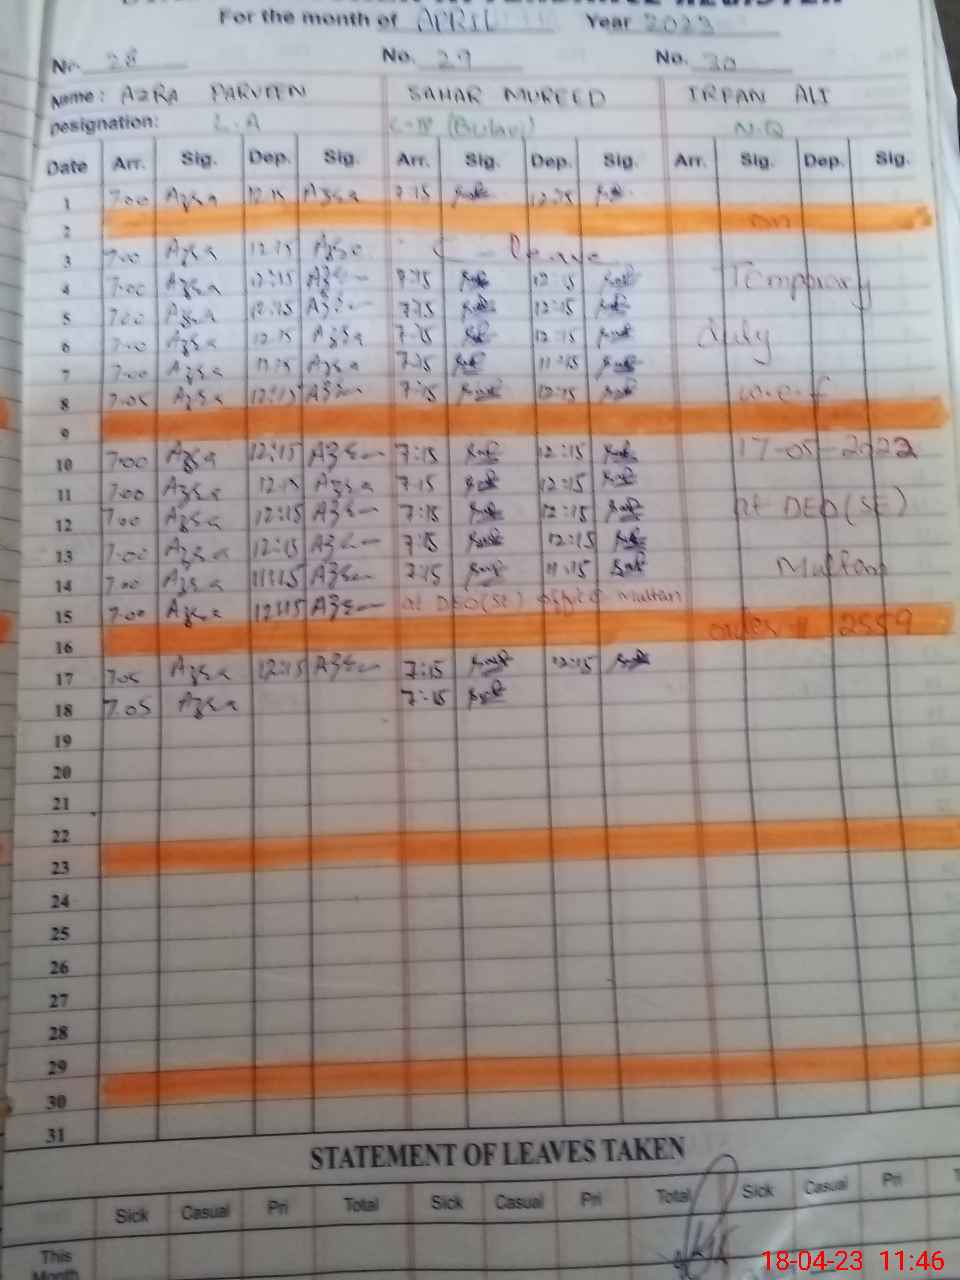 For the month of APRIL Year 2023
Nr. 28 No. 29 No. 30
Name: AZRA PARVEEN SAHAR MUREED IRFAN ALI
Designation: L.A N.Q
Date Arr. Sig. Dep. Sig. Arr. Sig. Dep. Sig. Arr. Sig. Dep. Sig.
1 7.00 Azra 12.15 Azra 7.15 12:15
2 on
3 7.00 Azra 12.15 Azra C - leave
4 7.00 Azra 12:15 Azra 7:15 12:15 Temporary
5 7.00 Azra 12.15 Azra 7.15 12:15
6 7.00 Azra 12.15 Azra 7.15 12:15 duty
7 7.00 Azra 11.15 Azra 7.15 11:15
8 7.05 Azra 12:15 Azra 7:15 12:15 w.e.f
9
10 7.00 Azra 12:15 Azra 7:15 12:15 17-05-2022
11 7.00 Azra 12.15 Azra 7.15 12:15
12 7.00 Azra 12:15 Azra 7:15 12:15 at DEO(SE)
13 7.00 Azra 12:15 Azra 7:15 12:15
14 7.00 Azra 11:15 Azra 7:15 11:15 Multan
15 7.00 Azra 12:15 Azra at DEO(SE) office multan
16 order # 2559
17 7.05 Azra 12:15 Azra 7:15 12:15
18 7.05 Azra 7:15
19
20
21
22
23
24
25
26
27
28
29
30
31
STATEMENT OF LEAVES TAKEN
Sick Casual Pri Total Sick Casual Pri Total Sick Casual Pri
This
Month
18-04-23 11:46